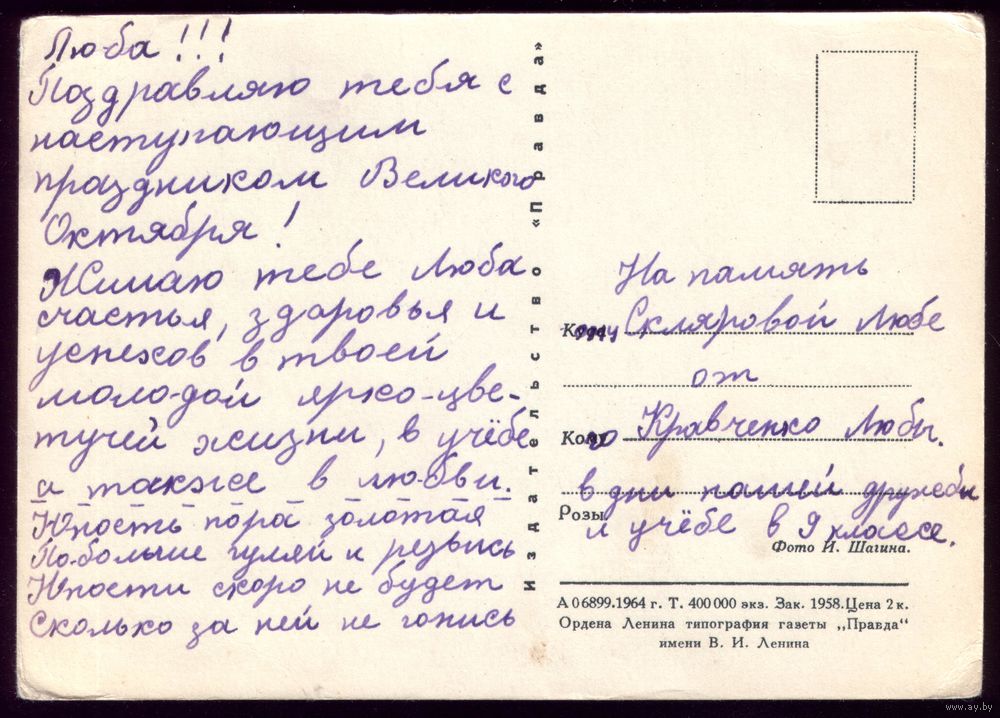 Люба!!!
Поздравляю тебя с
наступающим
праздником Великого
Октября!
Желаю тебе Люба
счастья, здоровья и
успехов в твоей
молодой ярко-цве-
тучей жизни, в учёбе
а также в любви.
Юность пора золотая
Побольше гуляй и резвись
Юности скоро не будет
Сколько за ней не гонись
Издательство «Правда»
На память
Кому Скляровой Любе
от
Кого Кравченко Любы.
в дни нашей дружбы
Розы и учёбе в 9 классе.
Фото И. Шагина.
А 06899.1964 г. Т. 400 000 экз. Зак. 1958. Цена 2 к.
Ордена Ленина типография газеты „Правда“
имени В. И. Ленина
www.ay.by